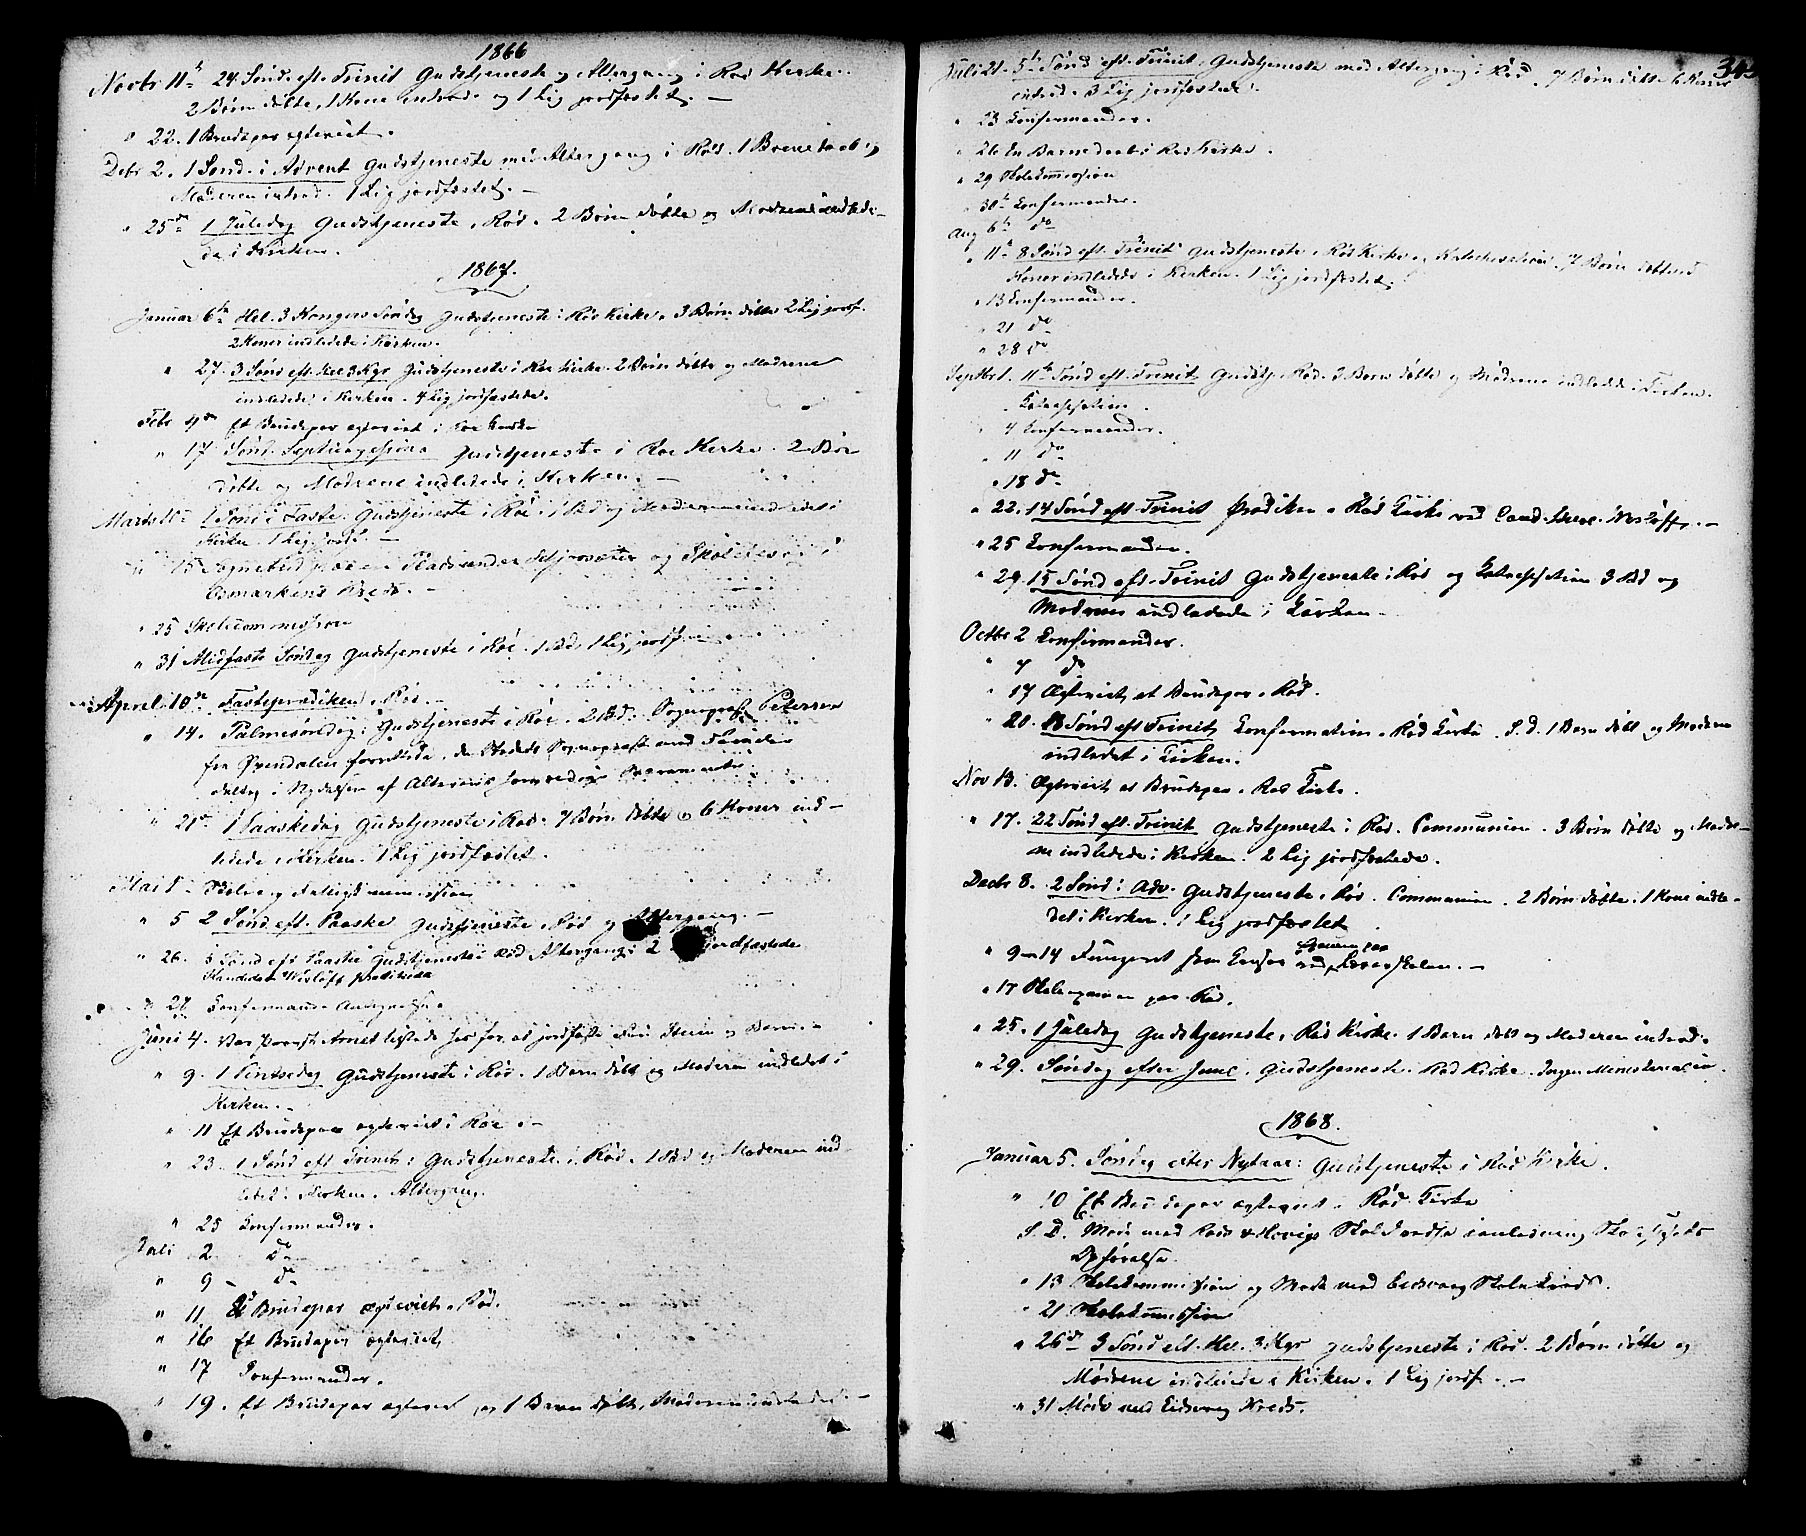 1866
Novbr 11te 24 Sönd. eft. Trinit Gudstjeneste og Altergang i Röd Kirke.
2 Börn döbte, 1 Kone indled. og 1 Lig jordfæstet. —
" 22. 1 Brudepar egteviet.
Debr 2. 1 Sönd. i Advent Gudstjeneste med Altergang i Röd. 1 Barn döbt og
Moderen indled. 1 Lig jordfæstet. —
" 25de 1 Juledag Gudstjeneste i Röd. 2 Börn döbte og Mödrene indlede-
de i Kirken.
1867.
Januar 6te Hel. 3 Kongers Söndag Gudstjeneste i Röd Kirke. 3 Börn döbte 2 Lig jordf.
2 Koner indledede i Kirken.
" 27. 3 Sönd eft. hel 3 Kgr Gudstjeneste i Röd Kirke. 2 Börn döbte og Mödrene
indledede i Kirken. 4 Lig jordfæstede.
Febr 4de Et Brudepar egteviet i Röe Kirke
" 17 Sönd. Septuagesima Gudstjeneste i Röe Kirke. 2 Bör
döbte og Mödrene indledede i Kirken. —
Marts 10 1 Sönd i Faste. Gudstjeneste i Röe. 1 Bd og Moderen indledet i
Kirken. 1 Lig jordf. —
" 15 Sognebud paa Pladsen under og Skolebesög i
Kreds. —
" 25 Skolecommission
" 31 Midfaste Söndag Gudstjeneste i Röe. 1 Bd, 1 Lig jordf.
April 10de Fasteprædiken i Röd. —
" 14. Palmesöndag: Gudstjeneste i Röe. 2 Bd. Sognepræst Petersen
fra Öxendalen forrettede, da Stedets Sognepræst med Familie
deltog i Nydelsen af Alterens höiværdige Sacramente.
" 21de 1 Paaskedag Gudstjeneste i Röd. 7 Börn döbte og 6 Koner ind-
ledede i Kirken. 1 Lig jordfæstet.
Mai 1 Skole og Fattigkommission
" 5 2 Sönd. eft. Paaske Gudstjeneste i Röd og Altergang. —
" 26. 5 Sönd eft Paaske Gudstjeneste i Röd Altergang. 2 jordfæstede
Kandidat Wislöff prædikede
" 28 Confirmand Antegnelse.
Juni 4. Var Provst Arnet tilstede her for at jordfæste Fru og Barn. —
" 9. 1 Pintsedag Gudstjeneste i Röd. 1 Barn döbt og Moderen indledet i
Kirken. —
" 11 Et Brudepar egteviet i Röe. —
" 23. 1 Sönd eft Trinit: Gudstjeneste i Röd. 1 Bd og Moderen ind-
ledet i Kirken. Altergang.
" 25 Confirmander.
Juli 2 do
" 9 do
" 11 Et Brudepar egteviet i Röd.
" 16 Et Brudepar egteviet.
" 17 Confirmander.
" 19. Et Brudepar egteviet, og 1 Barn döbt, Moderen indledet. —
343
Juli 21. 5te Sönd eft. Trinit. Gudstjeneste med Altergang i Röd. 7 Börn döbte 6 Koner
indled. 3 Lig jordfæstede.
" 23 Confirmander.
" 26 En Barnedaab i Röd Kirke.
" 29 Skolekommission
" 30te Confirmander.
Aug 6te do
" 11te 8 Sönd eft. Trinit: Gudstjeneste i Röd Kirke og Katechisation. 7 Börn döbte
Koner indledede i Kirken. 1 Lig jordfæstet.
" 13 Confirmander.
" 21 do
" 28 do
Septbr 1. 11te Sönd eft. Trinit. Gudstj. Röd. 3 Börn döbte og Mödrene indledede i Kirken.
Catechisation.
" 4 Confirmander.
" 11 do
" 18 do
" 22. 14 Sönd eft. Trinit Prædiken i Röd Kirke ved Cand. theol. Wislöff. —
" 25 Confirmander.
" 29. 15 Sönd eft. Trinit Gudstjeneste i Röd og Catechisation 3 Bd og
Mödrene indledede i Kirken.
Octbr 2 Confirmander.
" 7 do
" 17 Egteviet et Brudepar i Röd.
" 20. 18 Sönd eft Trinit, Confirmation i Röd Kirke. S. D. 1 Barn döbt og Moderen
indledet i Kirken.
Nov 13. Egteviet et Brudepar i Röd Kirke.
" 17. 22 Sönd eft. Trinit Gudstjeneste i Röd. Communion. 3 Börn döbte og Mödre-
ne indledede i Kirken. 2 Lig jordfæstede.
Decbr 8. 2 Sönd i Adv. Gudstjeneste i Röd. Communion. 2 Börn döbte. 1 Kone indle-
det i Kirken. 1 Lig jordfæstet
" 9–14 Fungeret som Censor ved Examen paa Lærerskolen. —
" 17 Skoleexamen paa Röd.
" 25. 1 Juledag Gudstjeneste i Röd Kirke. 1 Barn döbt og Moderen indled.
" 29. Söndag efter Juul. Gudstjeneste i Röd Kirke. Ingen Ministerialia.
1868.
Januar 5. Söndag efter Nytaar: Gudstjeneste i Röd Kirke.
" 10 Et Brudepar egteviet i Röd Kirke
S. D. Möde med Röds & Hovigs Skolekredse i anledning Skolehusets
Opförelse.
" 13 Skolekommission og Möde med Eidsvaag Skolekreds.
" 21 Skolekommission
" 26de 3 Sönd eft. Hel. 3 Kgr Gudstjeneste i Röd. 2 Börn döbte og
Mödrene indledede i Kirken. 1 Lig jordf. —
" 31 Möde med Eidsvaag Kreds.